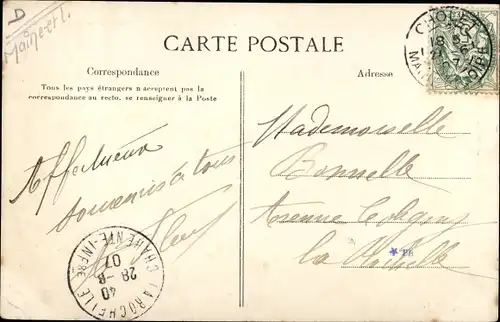 D
CARTE POSTALE
Correspondance
Tous les pays étrangers n acceptent pas la
correspondance au recto. se renseigner à la Poste
Adresse
CHOLET
Affectueux
souvenirs à tous
Mademoiselle
Bonnelle
Avenue Coligny
La Rochelle
LA ROCHELLE
CHARENTE-INFRE
40
28-8
07